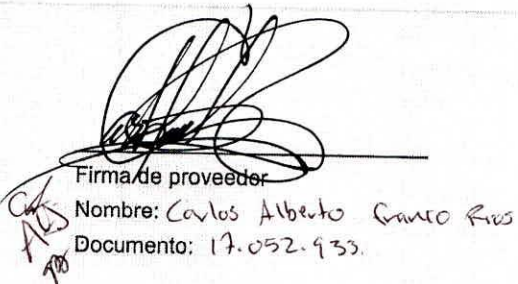 Firma de proveedor
Nombre: Carlos Alberto Franco Rios
Documento: 17.052.933.